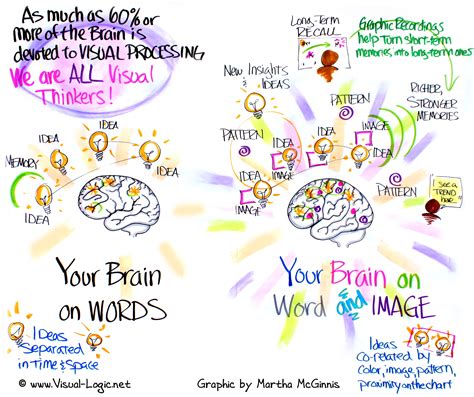 As much as 60% or
more of the Brain is
devoted to VISUAL PROCESSING
We are ALL Visual
Thinkers!
IDEA
IDEA
IDEA
MEMORY
IDEA
Your Brain
on WORDS
Ideas
Separated
in Time & Space
Long-Term
RECALL
Graphic Recordings
help turn short-term
memories into long-term ones
New Insights
IDEAS
PATTERN
RICHER,
STRONGER
MEMORIES
IDEA
IMAGE
PATTERN
IDEA
IDEA
PATTERN
IDEA
IMAGE
I see a
TREND
here...
Your Brain on
Word and IMAGE
Ideas
Co-related by
color, image, pattern,
proximity on the chart
© www.Visual-Logic.net
Graphic by Martha McGinnis